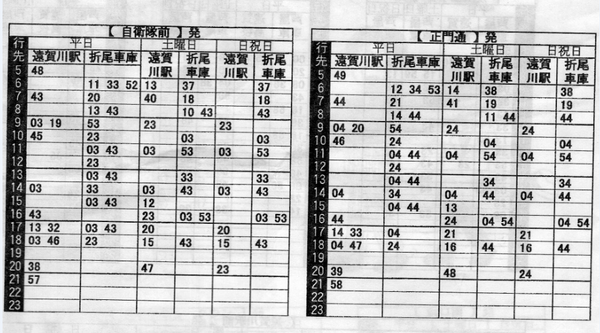 【 自衛隊前 】発
行先 平日 土曜日 日祝日
遠賀川駅 折尾車庫 遠賀川駅 折尾車庫 遠賀川駅 折尾車庫
5 48
6 11 33 52 13 37 37
7 43 20 40 18 18
8 13 43 10 43 43
9 03 19 53 23 23
10 45 23 03 03
11 03 43 03 53 03 53
12 23
13 03 43 33 33
14 03 33 03 43 03 43
15 03 43 12
16 43 23 03 53 03 53
17 13 32 03 43 20 20
18 03 46 23 15 43 15 43
20 38 47 23
21 57
22
23
【 正門通 】発
行先 平日 土曜日 日祝日
遠賀川駅 折尾車庫 遠賀川駅 折尾車庫 遠賀川駅 折尾車庫
5 49
6 12 34 53 14 38 38
7 44 21 41 19 19
8 14 44 11 44 44
9 04 20 54 24 24
10 46 24 04 04
11 04 44 04 54 04 54
12 24
13 04 44 34 34
14 04 34 04 44 04 44
15 04 44 13
16 44 24 04 54 04 54
17 14 33 04 21 21
18 04 47 24 16 44 16 44
20 39 48 24
21 58
22
23